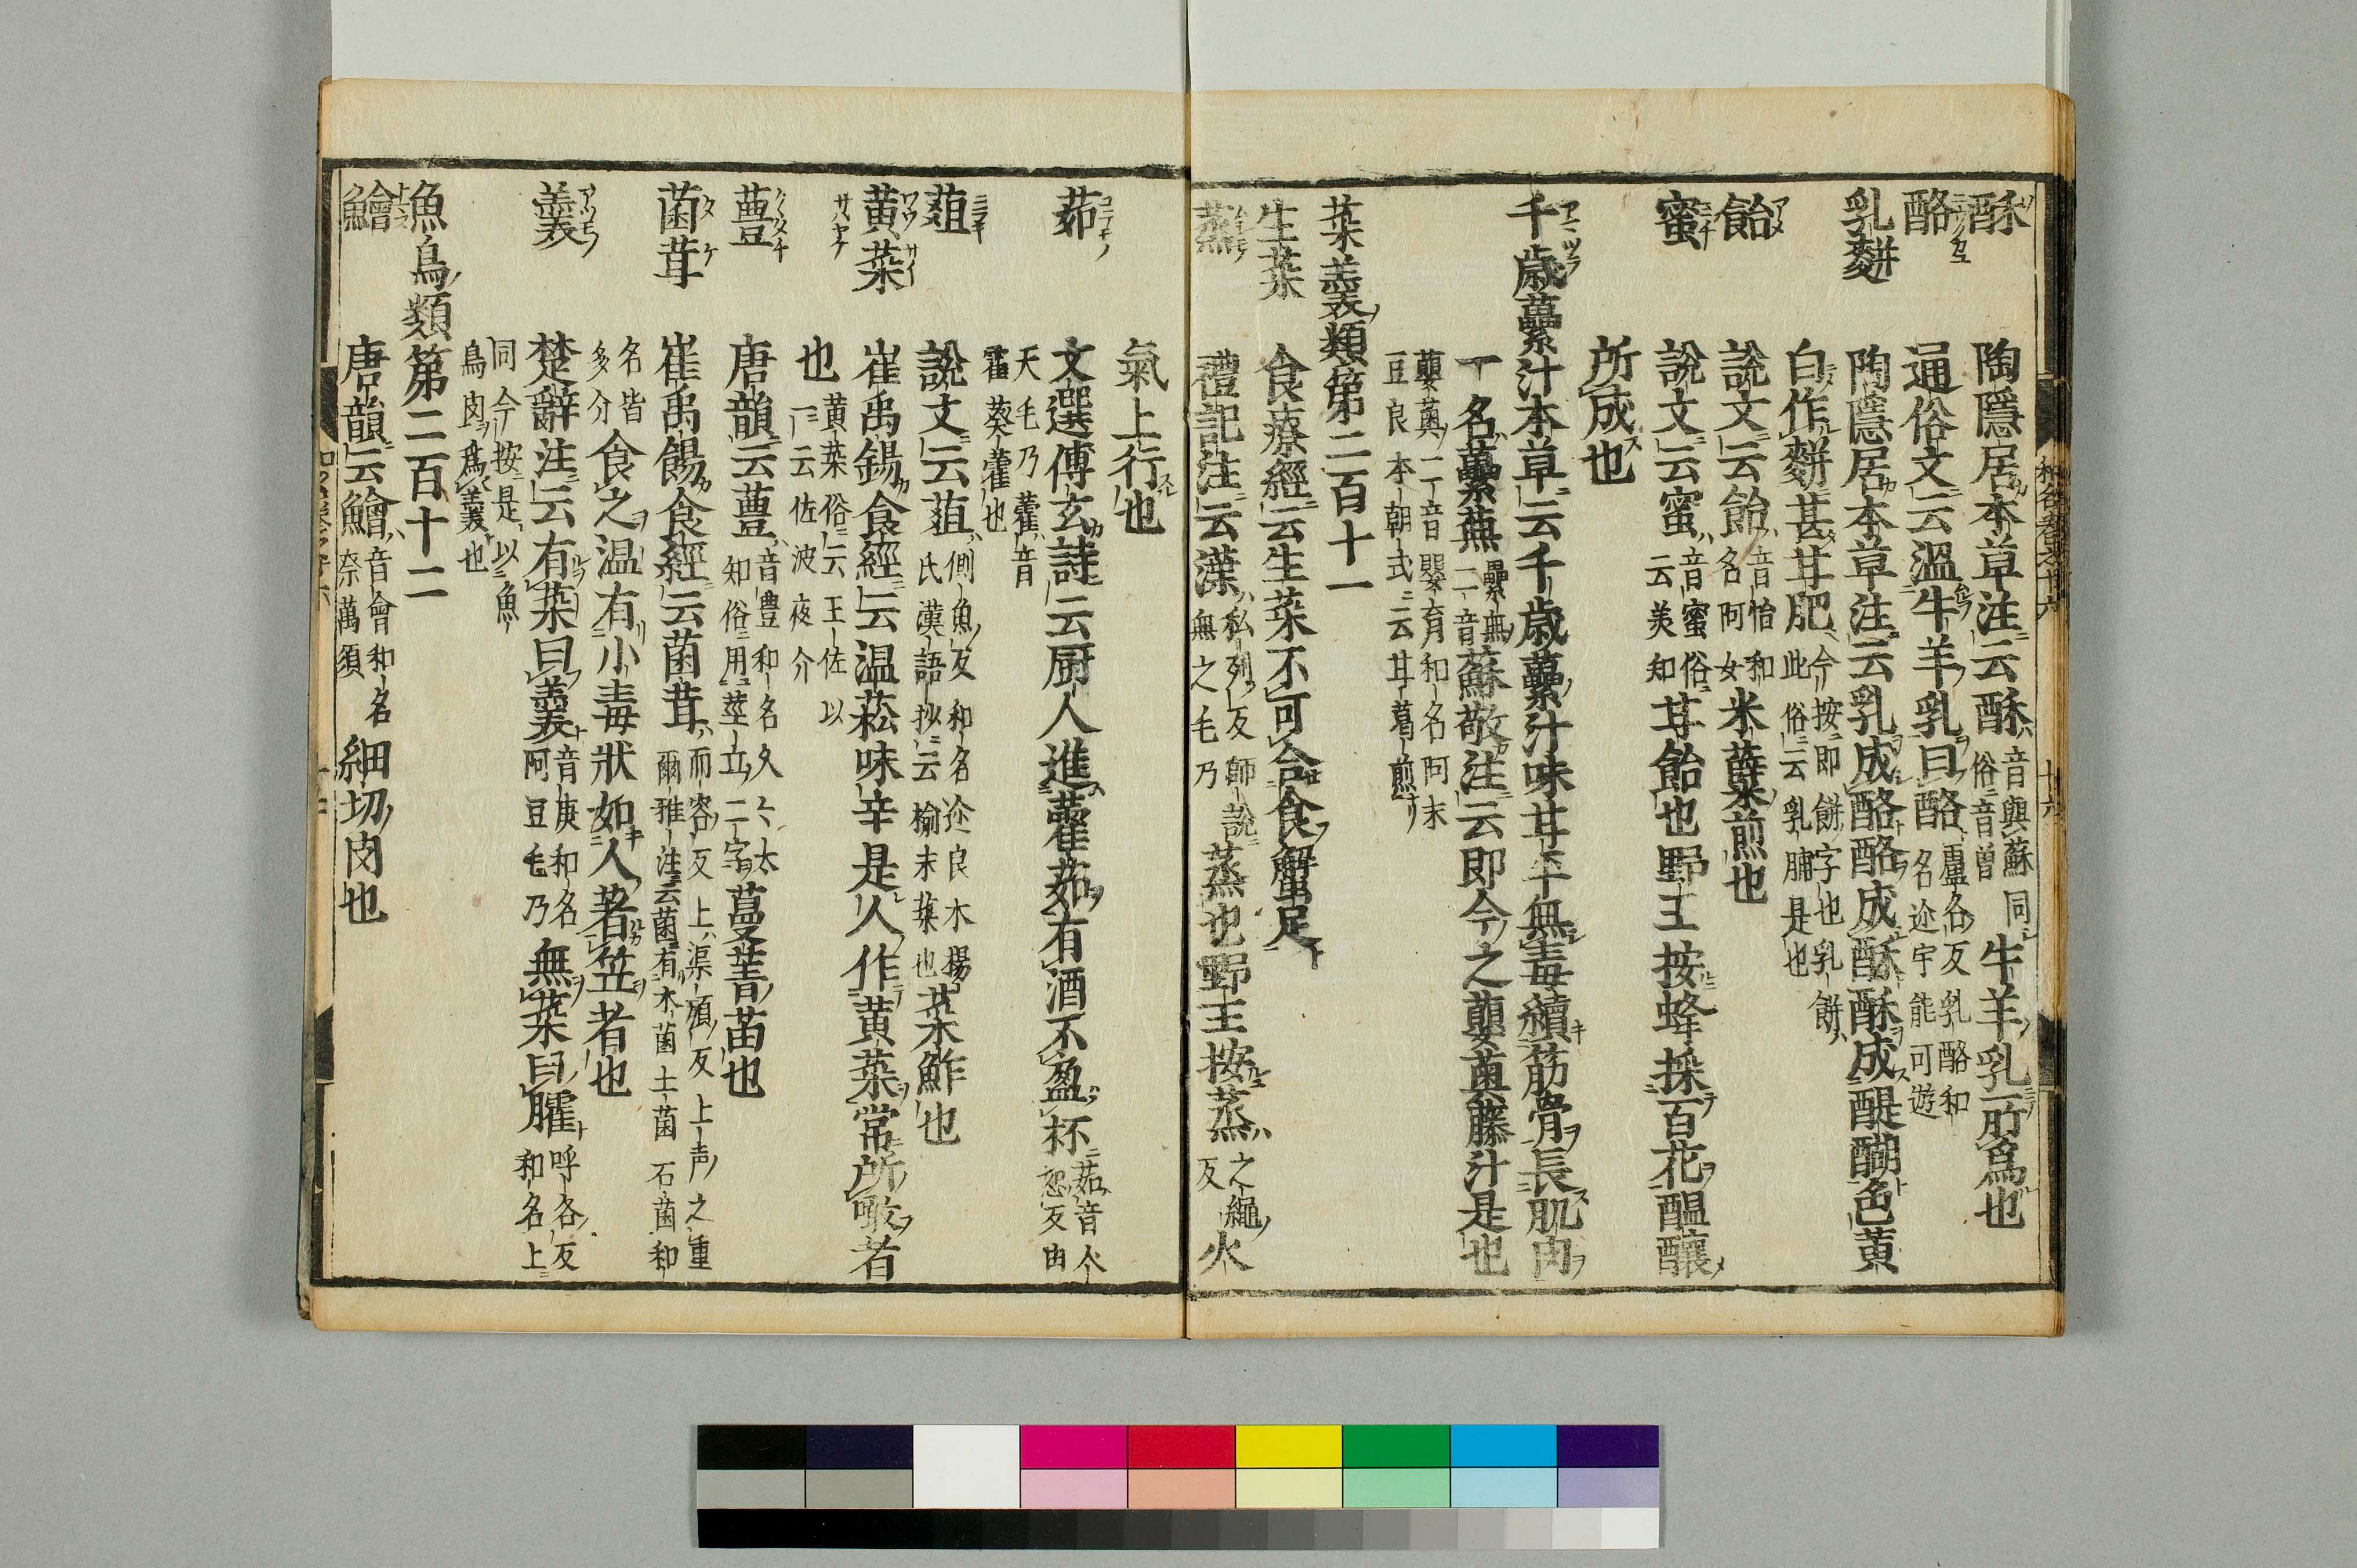 酥 陶隱居本草注云酥音與蘇同俗音曽牛羊乳所爲也
酪 通俗文云温牛羊乳曰酪盧各反乳酪和名迩宇能可遊
乳䴵 陶隱居本草注云乳成酪酪成酥酥成醍醐色黄
白作䴵甚甘肥今按即餅字也乳餅此俗云乳脯是也
飴 說文云飴音怡和名阿女米糵煎也
蜜 說文云蜜音蜜俗云美知甘飴也野王按蜂採百花醖釀
所成也
千歳虆汁 本草云千歳虆汁味甘平無毒續筋骨長肌肉
一名虆蕪虆無二音蘇敬注云即今之蘡薁藤汁是也
蘡薁二音嬰育和名阿末豆良本朝式云甘葛煎
菜羹類第二百十一
生菜 食療經云生菜不可合食蟹足
蒸 禮記注云渫私列反師說無之毛乃蒸也野王按蒸之繩反火
氣上行也
茹 文選傅玄詩云厨人進藿茹有酒不盈杯茹音人恕反由
天毛乃藿音霍葵藿也
菹 說文云菹側魚反和名迩良木楊氏漢語抄云楡末菜也菜鮓也
黄菜 崔禹錫食經云温菘味辛是人作黄菜常所噉者
也黄菜俗云王佐以一云佐波夜介
蘴 唐韻云蘴音豊和名久々太知俗用莖立二字蔓菁苗也
菌茸 崔禹錫食經云菌茸而容反上渠殞反上声之重爾雅注云菌有木菌土菌石菌和
名皆多介食之温有小毒狀如人著笠者也
羹 楚辭注云有菜曰羹音庚和名阿豆毛乃無菜曰臛呼各反和名上
同今按是以魚鳥肉爲羹也
魚鳥類第二百十二
鱠 唐韻云鱠音會和名奈萬須細切肉也